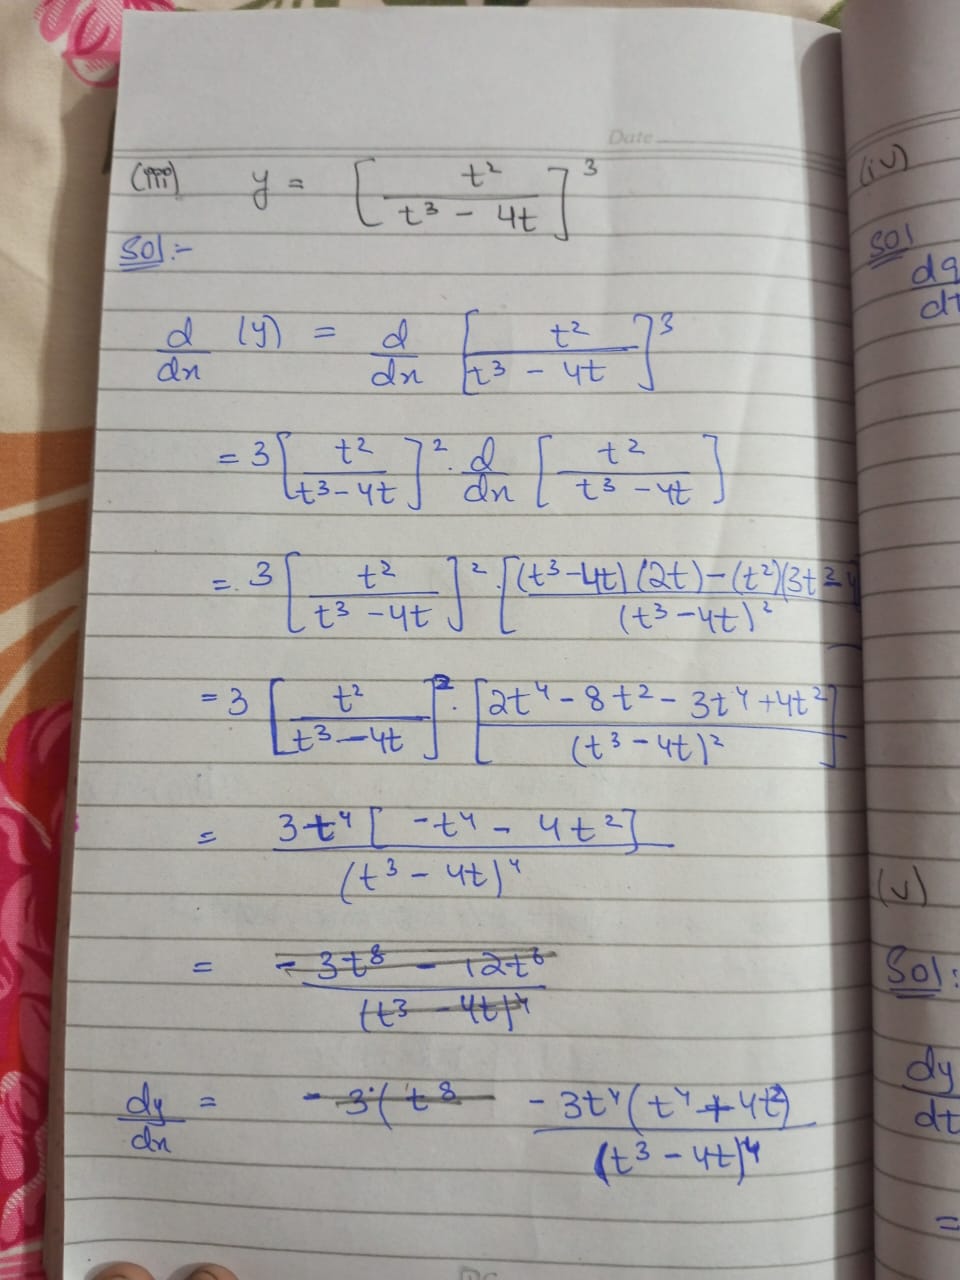 Date
(iii) y = [t² / (t³ - 4t)]³
Sol:-
d/dx (y) = d/dx [t² / (t³ - 4t)]³
= 3 [t² / (t³ - 4t)]² . d/dx [t² / (t³ - 4t)]
= 3 [t² / (t³ - 4t)]² . [(t³ - 4t) (2t) - (t²)(3t² - 4 / (t³ - 4t)²
= 3 [t² / (t³ - 4t)]² . [2t⁴ - 8t² - 3t⁴ + 4t² / (t³ - 4t)²]
= 3t⁴ [-t⁴ - 4t²] / (t³ - 4t)⁴
= - 3t⁸ - 12t⁶ / (t³ - 4t)⁴
dy/dx = - 3(t⁸ - 3t⁴ (t⁴ + 4t²) / (t³ - 4t)⁴
(iv)
Sol
dt
(v)
Sol:
dy/dt
=